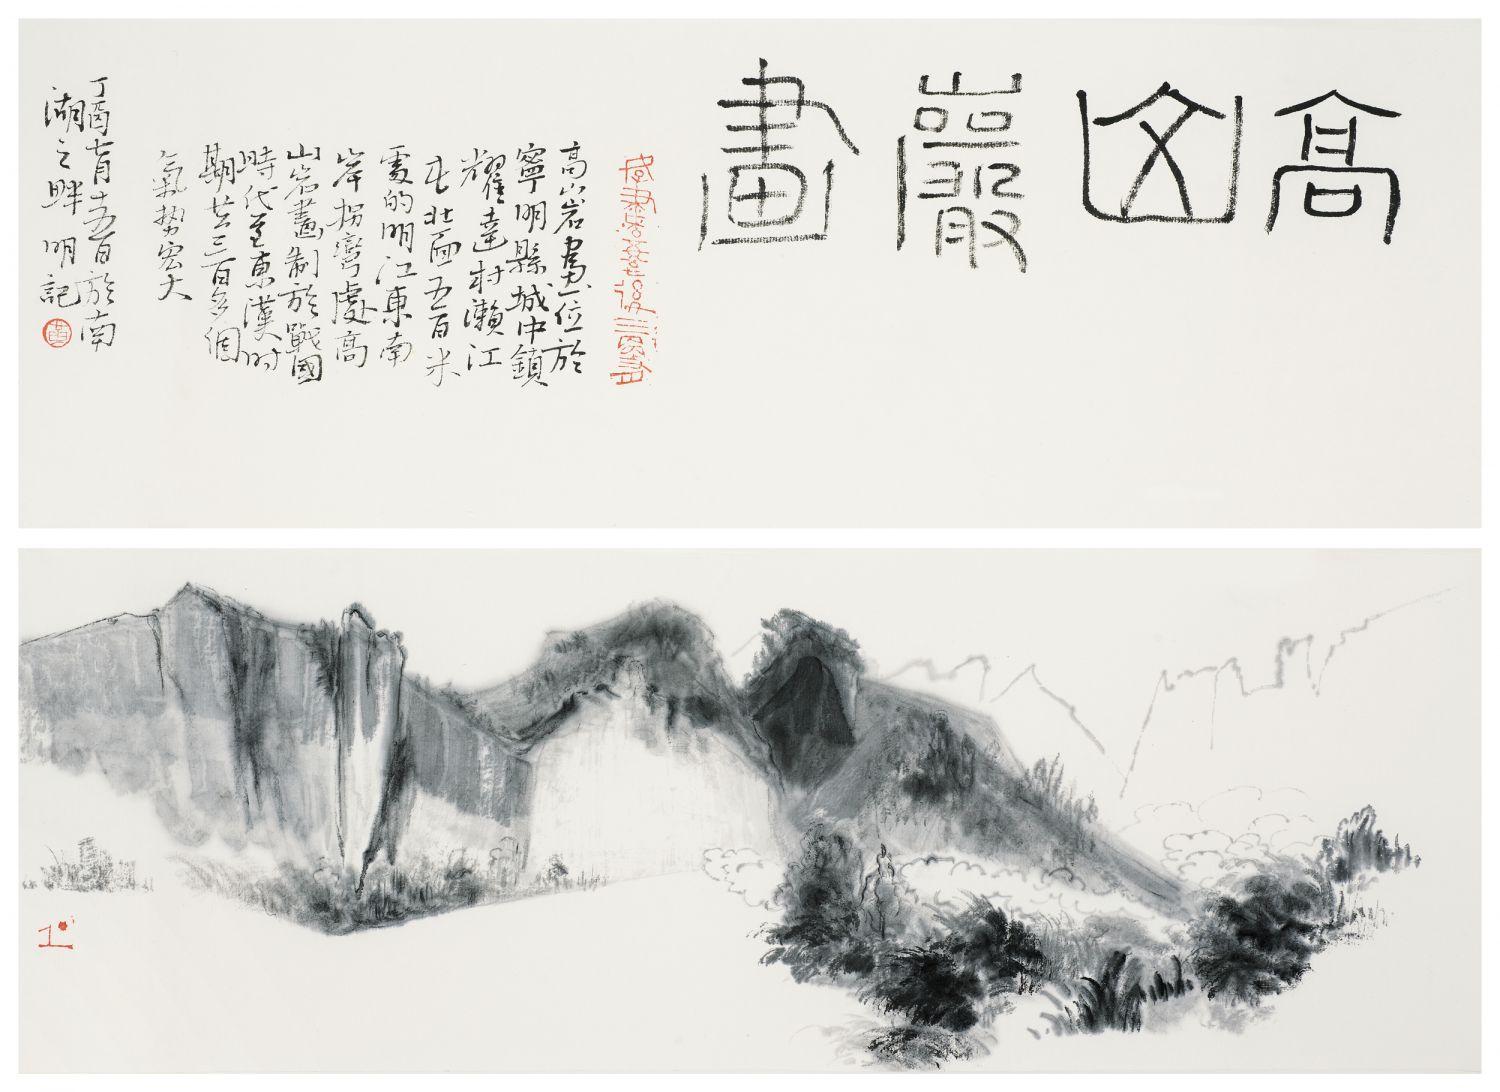 高山巖畫
高山岩畫位於
寧明縣城中鎮
耀達村瀨江
屯北面五百米
處的明江東南
岸拐彎處高
山岩畫制於戰國
時代至東漢时
期共三百多個
氣势宏大
丁酉七月十五日於南
湖之畔 明記